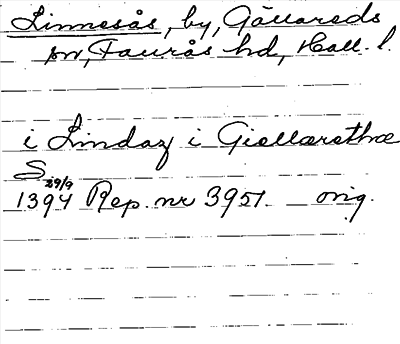 Linnesås, by, Gällareds
sn, Faurås hd, Hall. l.
i Lindaz i Giællaræthæ
S
29/9
1394 Rep. nr 3951. orig.